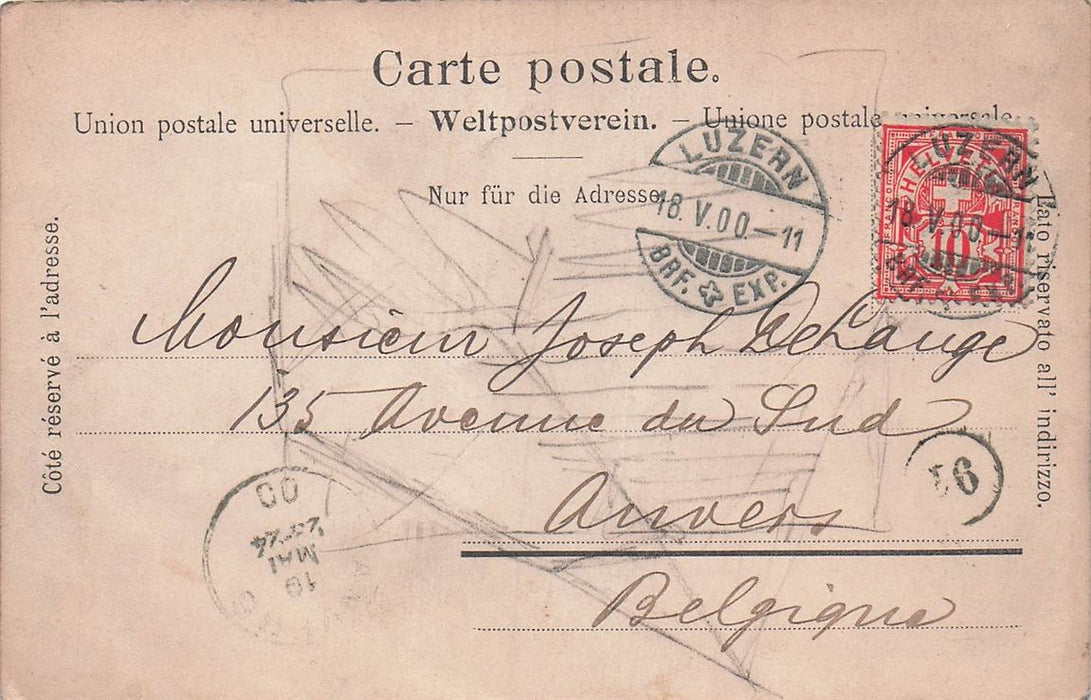 Carte postale.
Union postale universelle. – Weltpostverein. – Unione postale universale.
Nur für die Adresse
LUZERN
18.V.00.–11
BRF. EXP.
HELVETIA
10
LUZERN
18.V.00.–11
BRF. EXP.
Côté réservé à l'adresse.
Lato riservato all' indirizzo.
Monsieur Joseph DeLange
135 Avenue du Sud
Anvers
Belgique
19
MAI
00